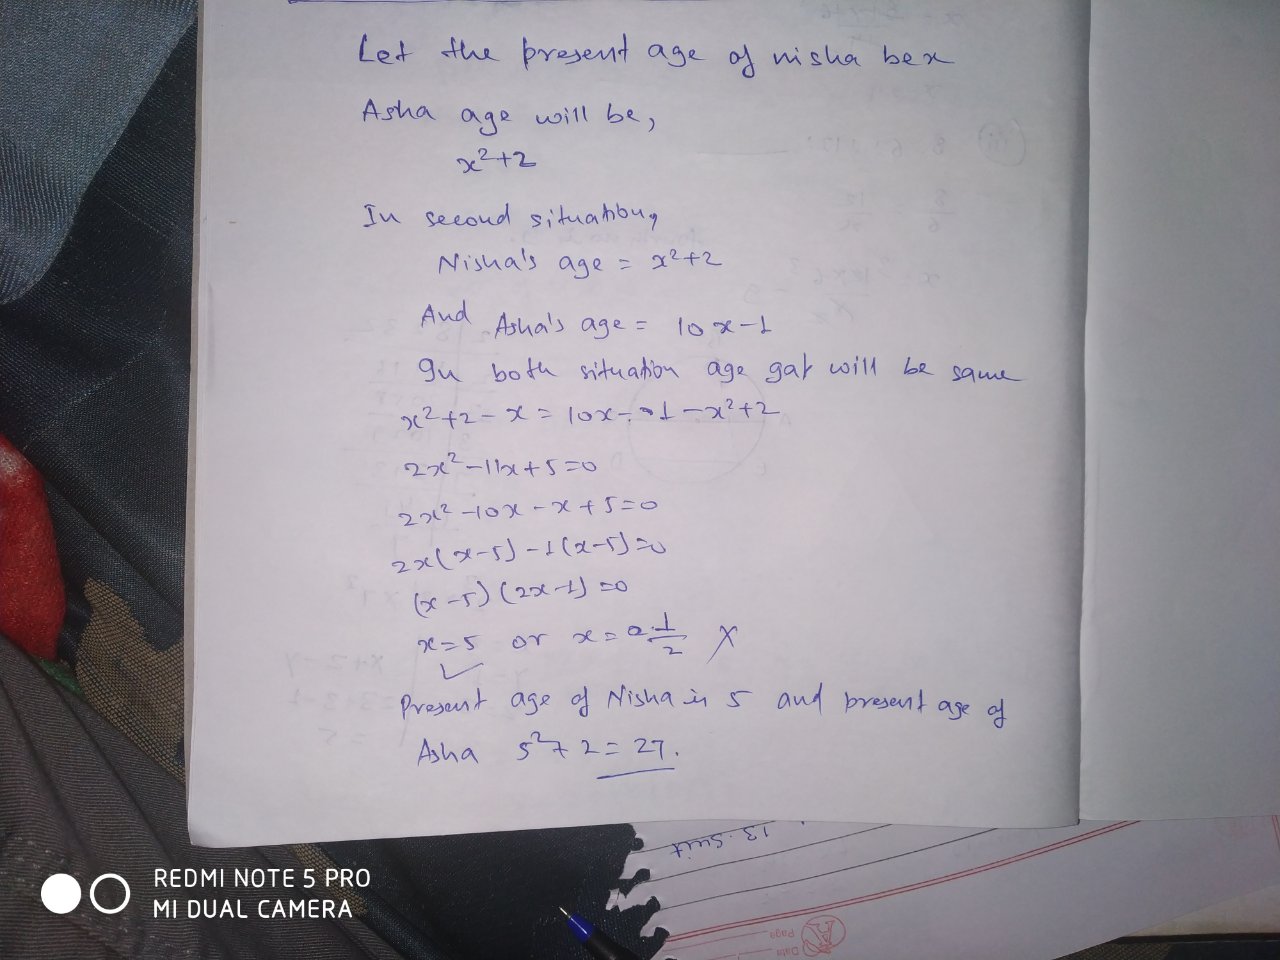 Let the present age of nisha be x
Asha age will be,
x²+2
In second situation,
Nisha's age = x²+2
And Asha's age = 10x-1
In both situation age gap will be same
x²+2-x = 10x-1-x²+2
2x²-11x+5=0
2x²-10x-x+5=0
2x(x-5)-1(x-5)=0
(x-5)(2x-1)=0
x=5 or x= 1/2 X
Present age of Nisha is 5 and present age of
Asha 5²+2=27.
13. Suit
Page
Date
REDMI NOTE 5 PRO
MI DUAL CAMERA